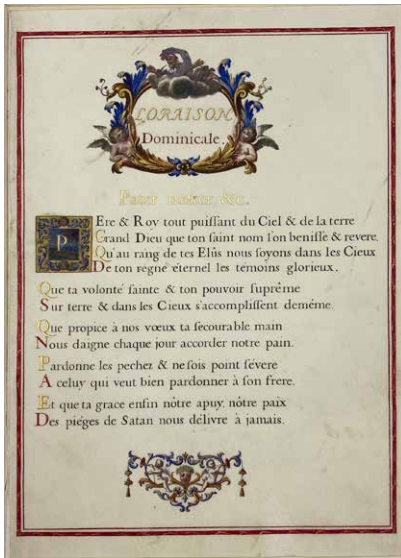 LORAISON
Dominicale.
Pater noster, &c.
PEre & Roy tout puiſſant du Ciel & de la terre
Grand Dieu que ton ſaint nom l'on beniſſe & revere,
Qu'au rang de tes Elûs nous ſoyons dans les Cieux
De ton regne éternel les témoins glorieux.
Que ta volonté ſainte & ton pouvoir ſuprême
Sur terre & dans les Cieux s'accompliſſent demême.
Que propice à nos vœux ta ſecourable main
Nous daigne chaque jour accorder notre pain.
Pardonne les pechez & ne ſois point ſévere
A celuy qui veut bien pardonner à ſon frere.
Et que ta grace enfin nôtre apuy, nôtre paix
Des piéges de Satan nous délivre à jamais.